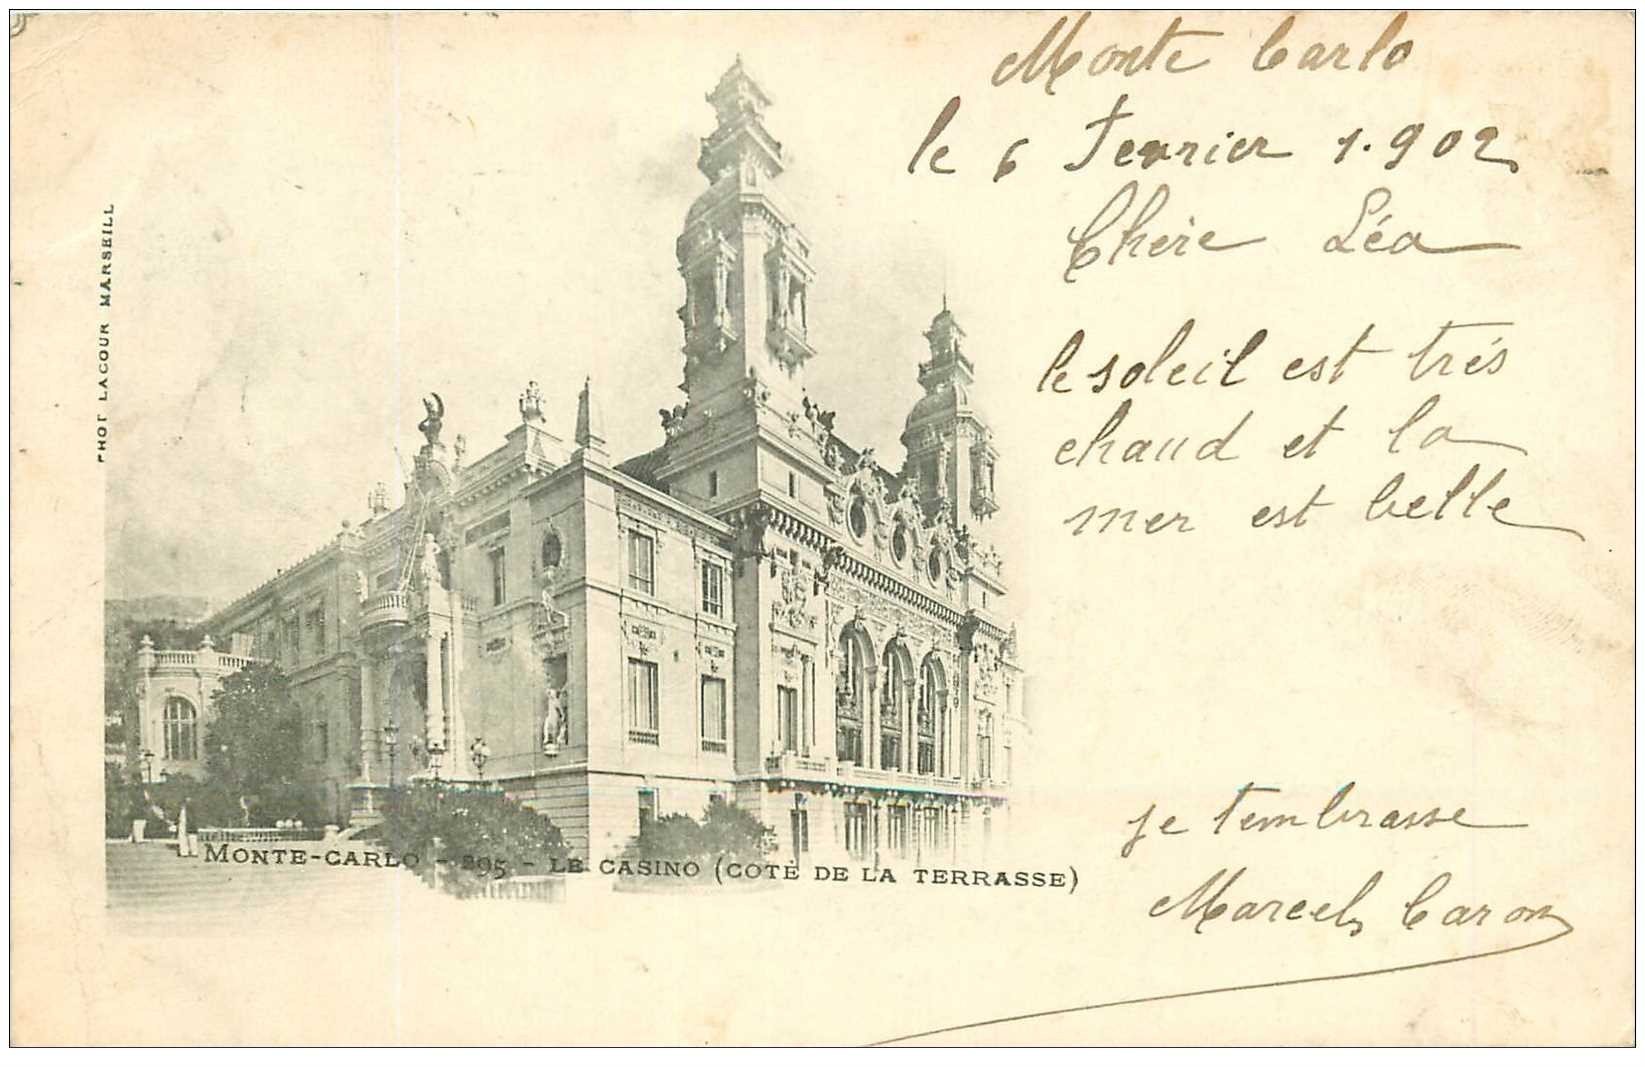 Monte Carlo
le 6 Fevrier 1.902
Chère Léa
le soleil est trés
chaud et la
mer est belle
je t'embrasse
Marcel Caron
PHOT LACOUR MARSEILL
MONTE-CARLO - 295 - LE CASINO (COTÉ DE LA TERRASSE)